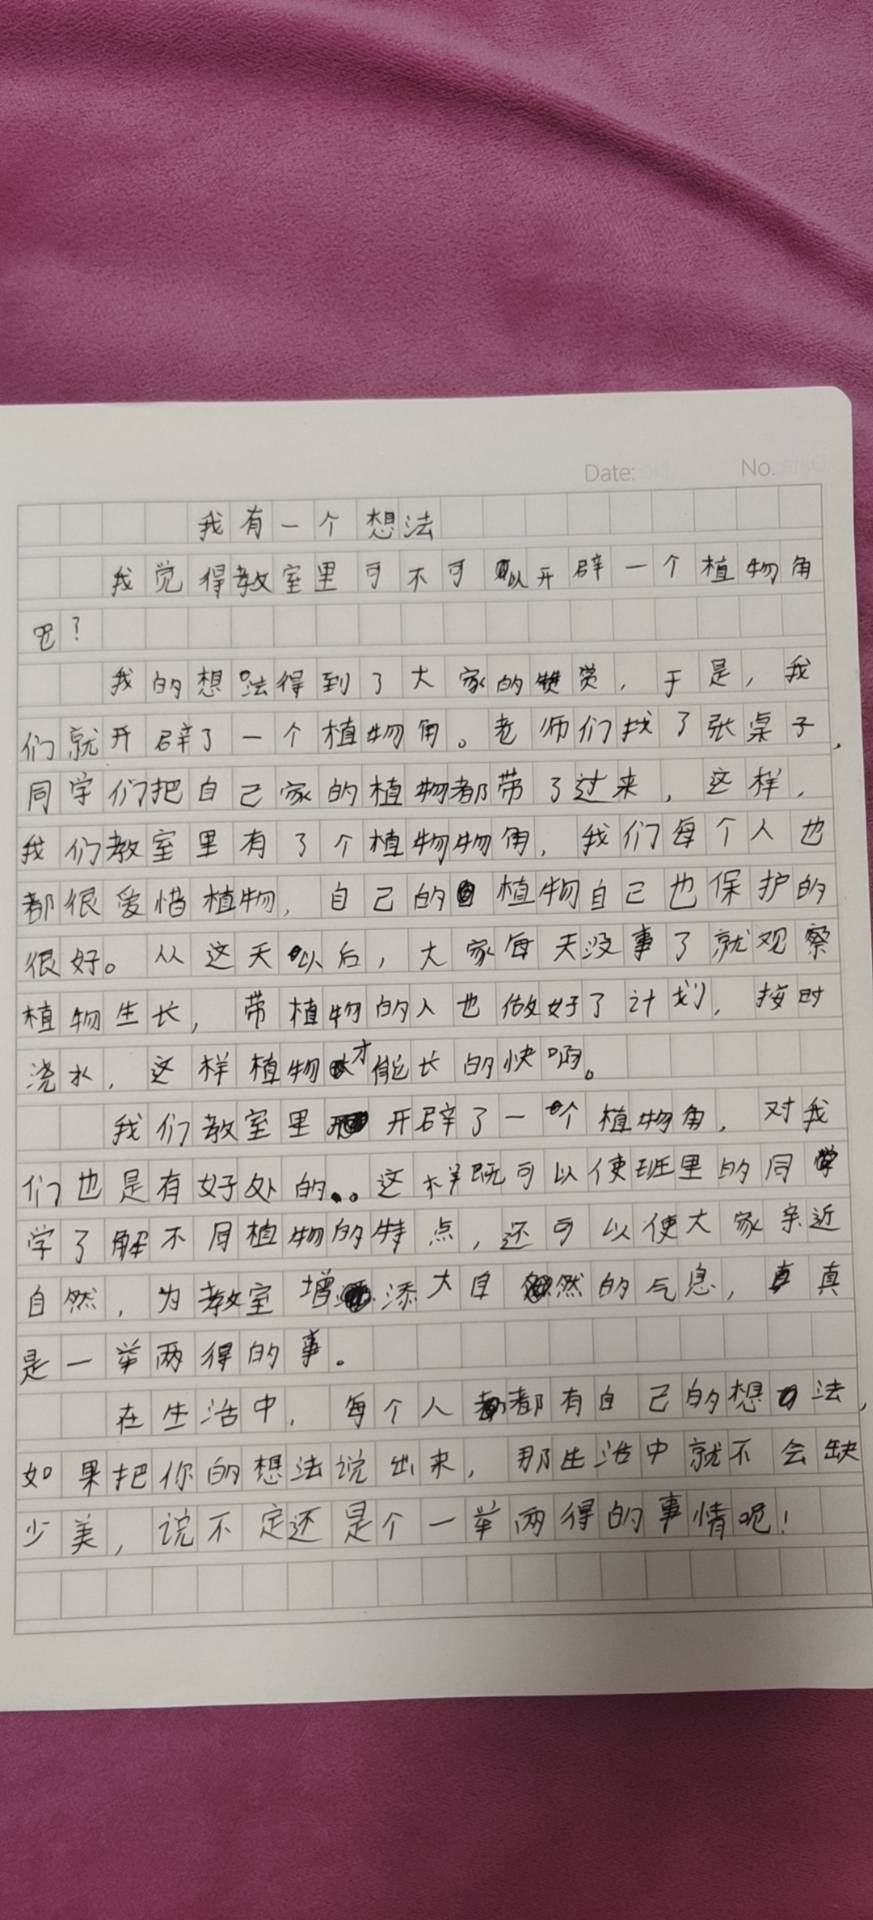 Date:
No.
我有一个想法
我觉得教室里可不可以开辟一个植物角
吧？
我的想法得到了大家的赞赏，于是，我
们就开辟了一个植物角。老师们找了张桌子，
同学们把自己家的植物都带了过来，这样，
我们教室里有了个植物物角，我们每个人也
都很爱惜植物，自己的植物自己也保护的
很好。从这天以后，大家每天没事了就观察
植物生长，带植物的人也做好了计划，按时
浇水，这样植物才能长的快啊。
我们教室里开辟了一个植物角，对我
们也是有好处的。这样既可以使班里的同
学了解不同植物的特点，还可以使大家亲近
自然，为教室增添大自然的气息，真
是一举两得的事。
在生活中，每个人都有自己的想法，
如果把你的想法说出来，那生活中就不会缺
少美，说不定还是个一举两得的事情呢！